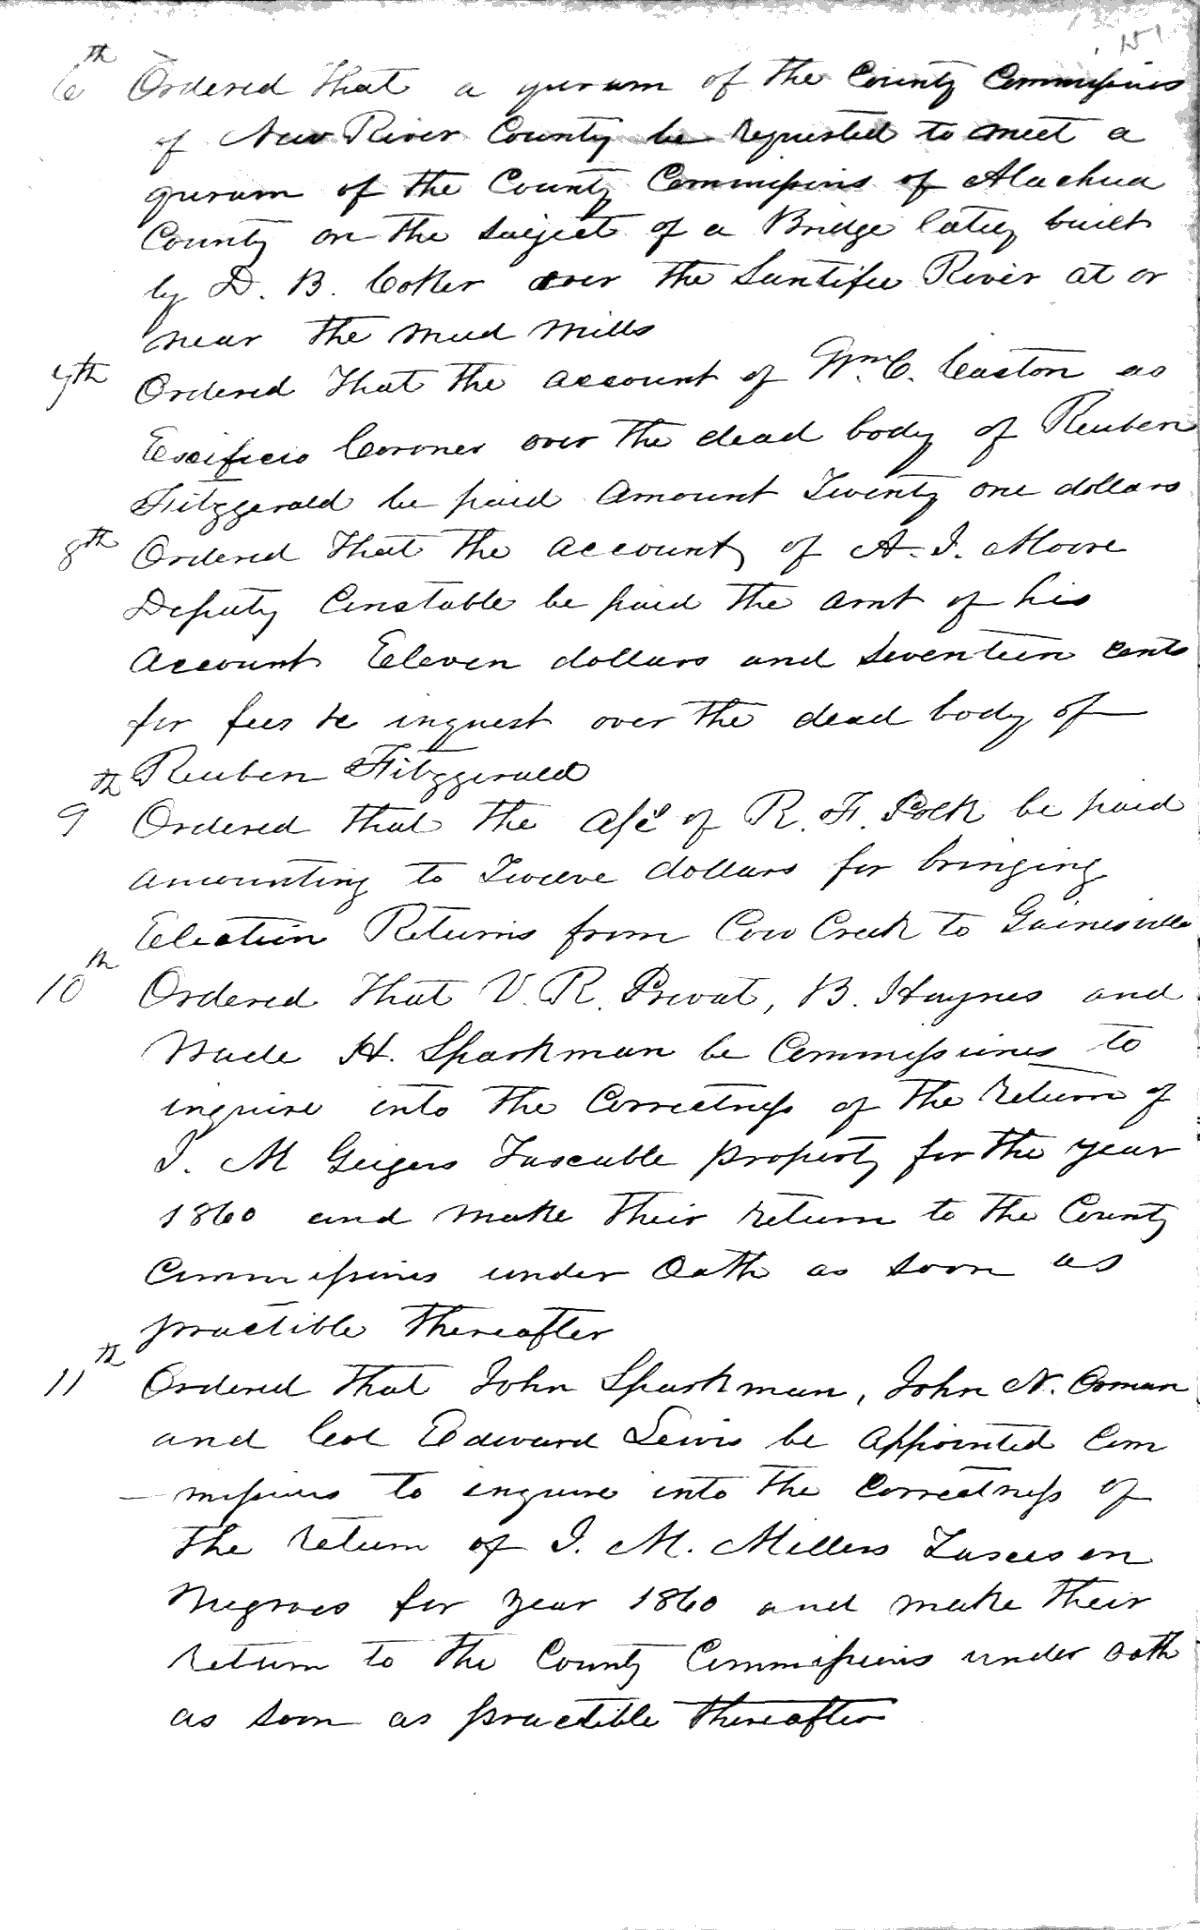 151
6th Ordered that a quram of the County Commissines
of New River County be requested to meet a
quram of the County Commissins of Alachua
County on the subject of a Bridge lately built
by D. B. Coker over the Santifee River at or
near the mud mills
7th Ordered that the account of Wm. C. Caston as
Exificio Coroner over the dead body of Reuben
Fitzggerald be paid amount Twenty one dollars
8th Ordered that the account of A. J. Moore
Deputy Constable be paid the amt of his
account Eleven dollars and seventeen cents
for fees &c inquest over the dead body of
Reuben Fitzggerald
9th Ordered that the a/c of R. F. Polk be paid
amounting to Twelve dollars for bringing
Election Returns from Cow Creek to Gainesville
10th Ordered that V. R. Privat, B. Haynes and
Wade H. Sparkman be Commissines to
inquire into the Correctness of the return of
J. M Geigers Taxeable property for the year
1860 and make their return to the County
Commissines under Oath as soon as
practible thereafter
11th Ordered that John Sparkman, John N. Oman
and Col Edward Lewis be appointed Com
- missines to inquire into the correctness of
the return of J. M. Millers Taxes on
Negroes for year 1860 and make their
return to the County Commissines under oath
as soon as practible thereafter